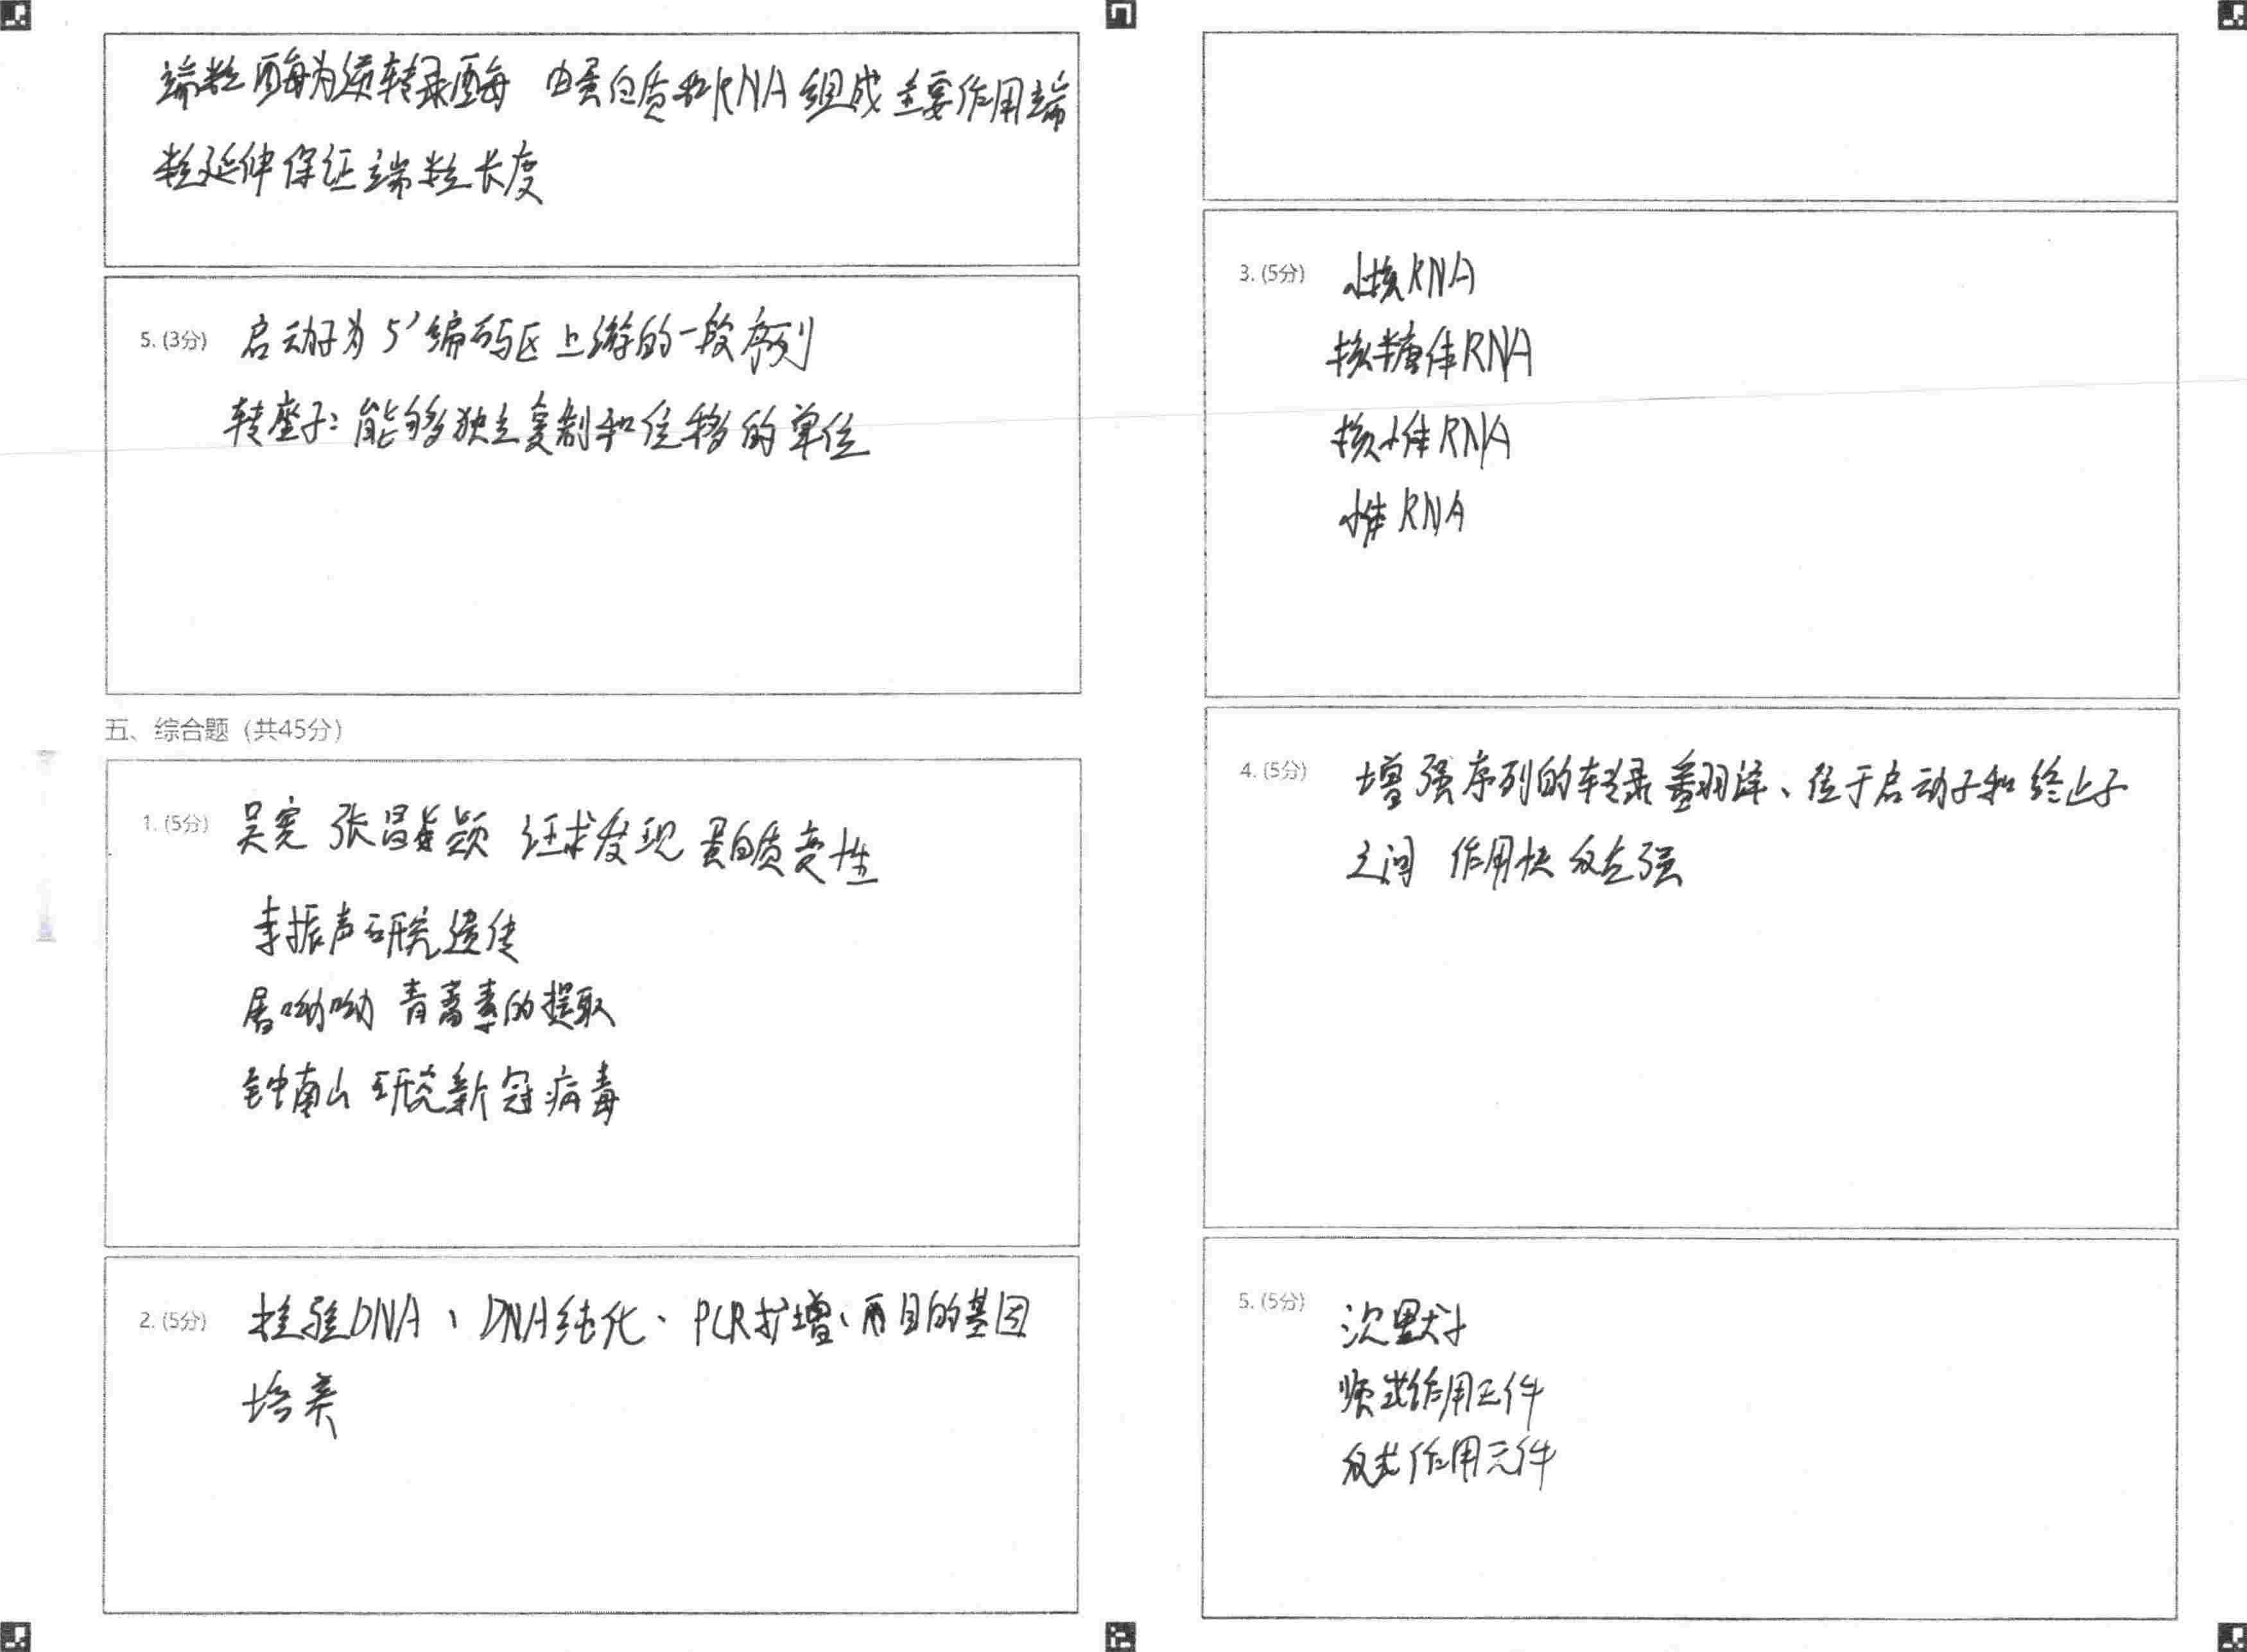 端粒酶为逆转录酶 由蛋白质和RNA组成 主要作用端
粒延伸保证端粒长度
5. (3分) 启动子为5'编码区上游的一段序列
转座子：能够独立复制和位移的单位
五、综合题（共45分）
1. (5分) 吴宪 张昌颖 证求发现 蛋白质变性
李振声研究遗传
屠呦呦 青蒿素的提取
钟南山 研究新冠病毒
2. (5分) 检验DNA、DNA纯化、PCR扩增、目的基因
培养
3. (5分) 小核RNA
核糖体RNA
核小体RNA
小体RNA
4. (5分) 增强序列的转录翻译、位于启动子和终止子
之间 作用快 强
5. (5分) 沉默子
顺式作用元件
反式作用元件